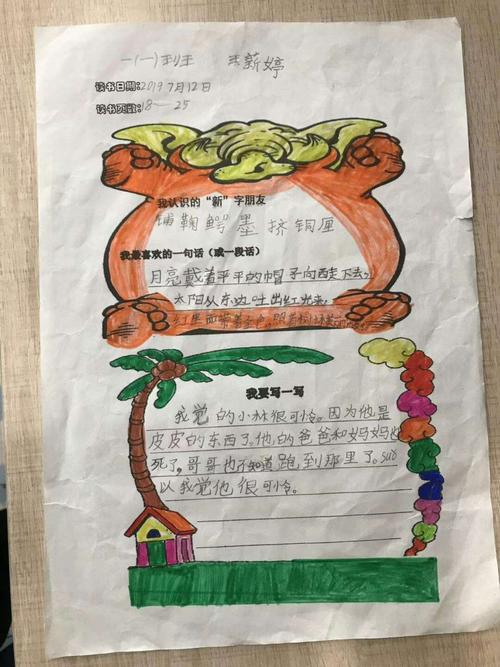 一(一)班 王薪婷
读书日期:2019 7月12日
读书页数:18—25
我认识的“新”字朋友
铺 鞠 鳄 墨 挤 铜 厘
我最喜欢的一句话（或一段话）
月亮戴着平平的帽子向西走下去,
太阳从东边吐出红光来,
红里面带着金色,照着
我要写一写
我觉的小林很可怜。因为他是
皮皮的东西了,他的爸爸和妈妈也
死了,哥哥也不知道跑到那里了。suǒ
以我觉他很可怜。